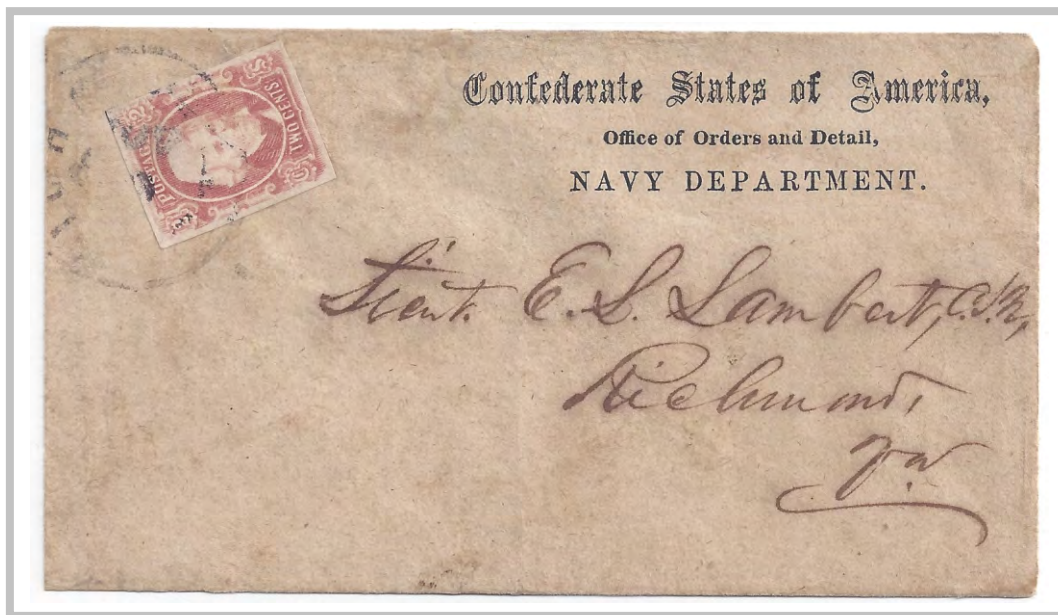 Confederate States of America,
Office of Orders and Detail,
NAVY DEPARTMENT.
TWO CENTS
POSTAGE
Lieut. E. S. Lambert, C.S.N,
Richmond,
Va